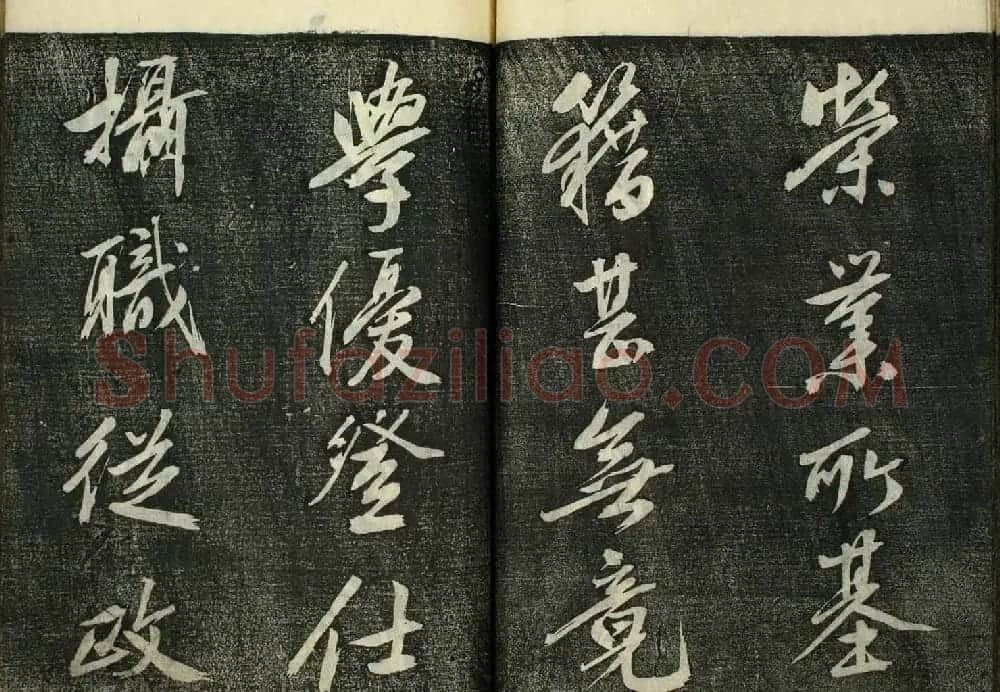 榮業所基
籍甚無竟
學優登仕
攝職從政
Shufaziliao.COM